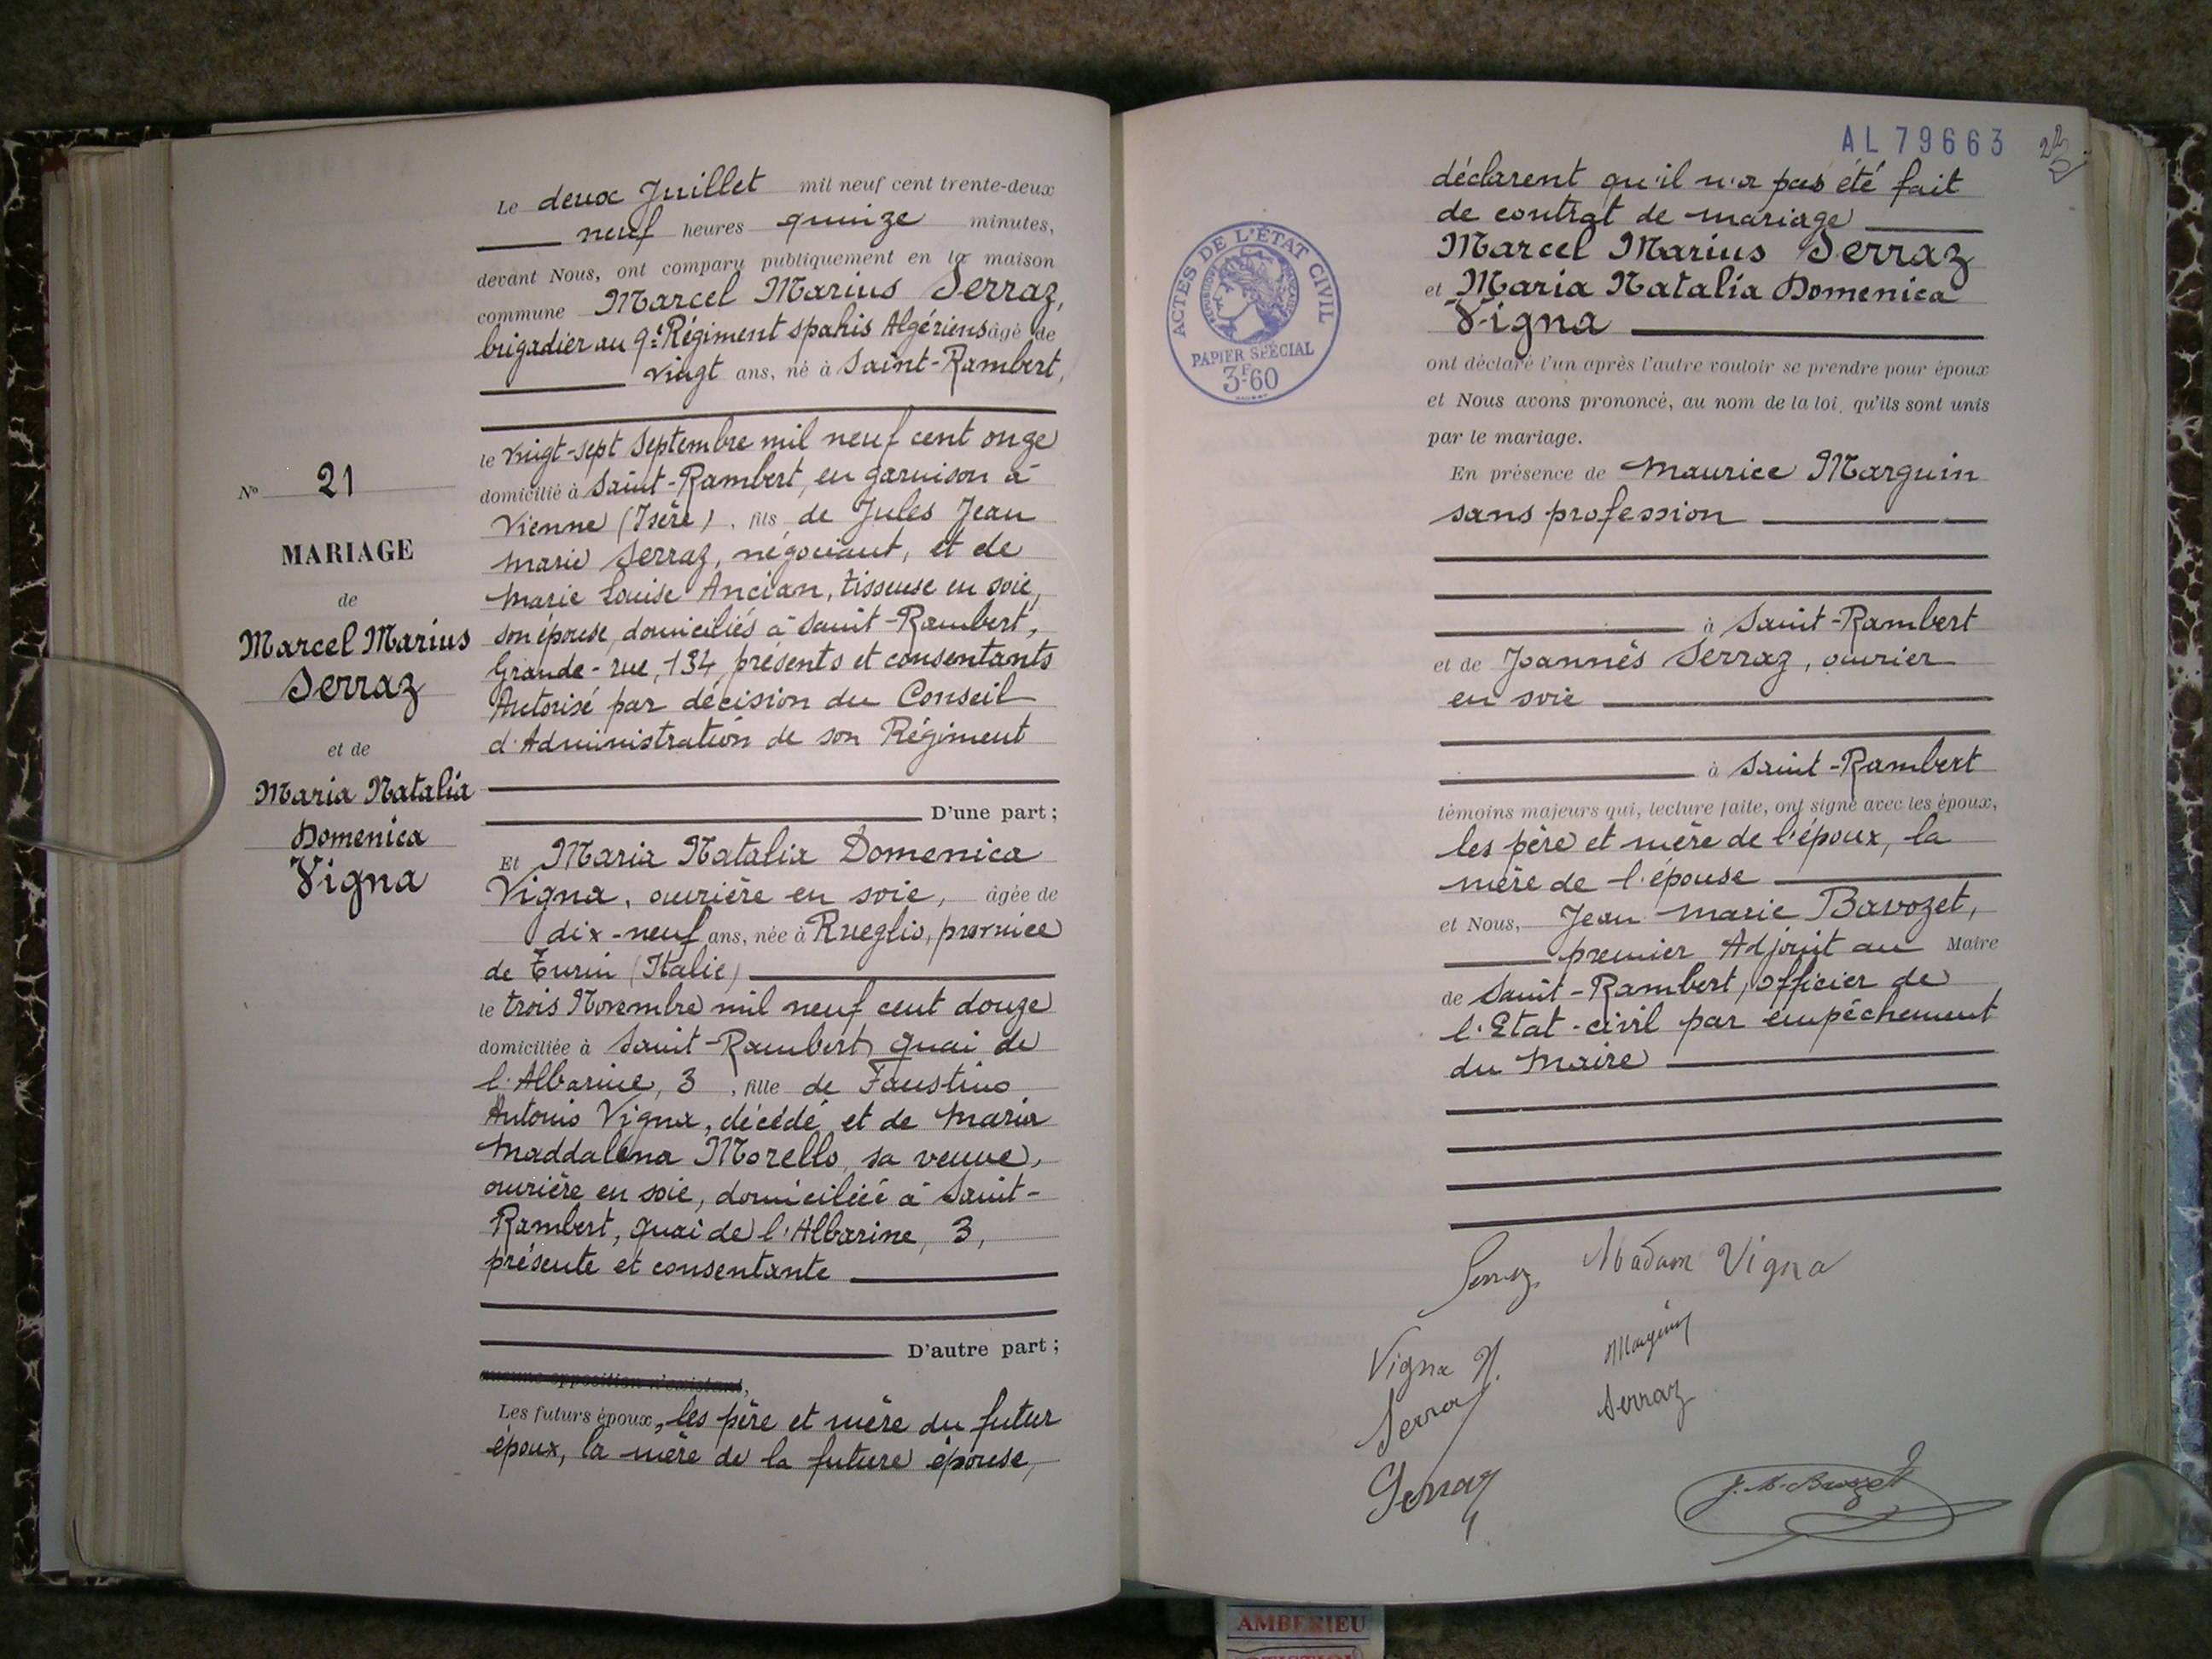 Le deux Juillet mil neuf cent trente-deux
neuf heures quinze minutes,
devant Nous, ont comparu publiquement en la maison
commune Marcel Marius Serraz,
brigadier au 9e Régiment spahis Algériens âgé de
vingt ans, né à Saint-Rambert,
le vingt-sept Septembre mil neuf cent onze
domicilié à Saint-Rambert, en garnison à
Vienne (Isère), fils de Jules Jean
Marie Serraz, négociant, et de
Marie Louise Ancian, tisseuse en soie,
son épouse, domiciliés à Saint-Rambert,
Grande-rue, 134, présents et consentants
Autorisé par décision du Conseil
d'Administration de son Régiment
D'une part ;
Et Maria Natalia Domenica
Vigna, ouvrière en soie, âgée de
dix-neuf ans, née à Rueglio, province
de Turin (Italie)
le trois Novembre mil neuf cent douze
domiciliée à Saint-Rambert, quai de
l'Albarine, 3, fille de Faustino
Antonio Vigna, décédé et de Maria
Maddalena Morello, sa veuve,
ouvrière en soie, domiciliée à Saint-
Rambert, quai de l'Albarine, 3,
présente et consentante
D'autre part ;
aucune opposition n'existant,
Les futurs époux, les père et mère du futur
époux, la mère de la future épouse,
No 21
MARIAGE
de
Marcel Marius
Serraz
et de
Maria Natalia
Domenica
Vigna
AL 79663
déclarent qu'il n'a pas été fait
de contrat de mariage
Marcel Marius Serraz
et Maria Natalia Domenica
Vigna
ont déclaré l'un après l'autre vouloir se prendre pour époux
et Nous avons prononcé, au nom de la loi, qu'ils sont unis
par le mariage.
En présence de Maurice Marguin
sans profession
à Saint-Rambert
et de Joannès Serraz, ouvrier
en soie
à Saint-Rambert
témoins majeurs qui, lecture faite, ont signé avec les époux,
les père et mère de l'époux, la
mère de l'épouse
et Nous, Jean Marie Bavozet,
premier Adjoint au Maire
de Saint-Rambert, officier de
l'Etat-civil par empêchement
du Maire
ACTES DE L'ÉTAT CIVIL
RÉPUBLIQUE FRANÇAISE
PAPIER SPÉCIAL
3F60
Serraz Madam Vigna
Vigna N. Marguin
Serraz Serraz
Serraz
AMBERIEU